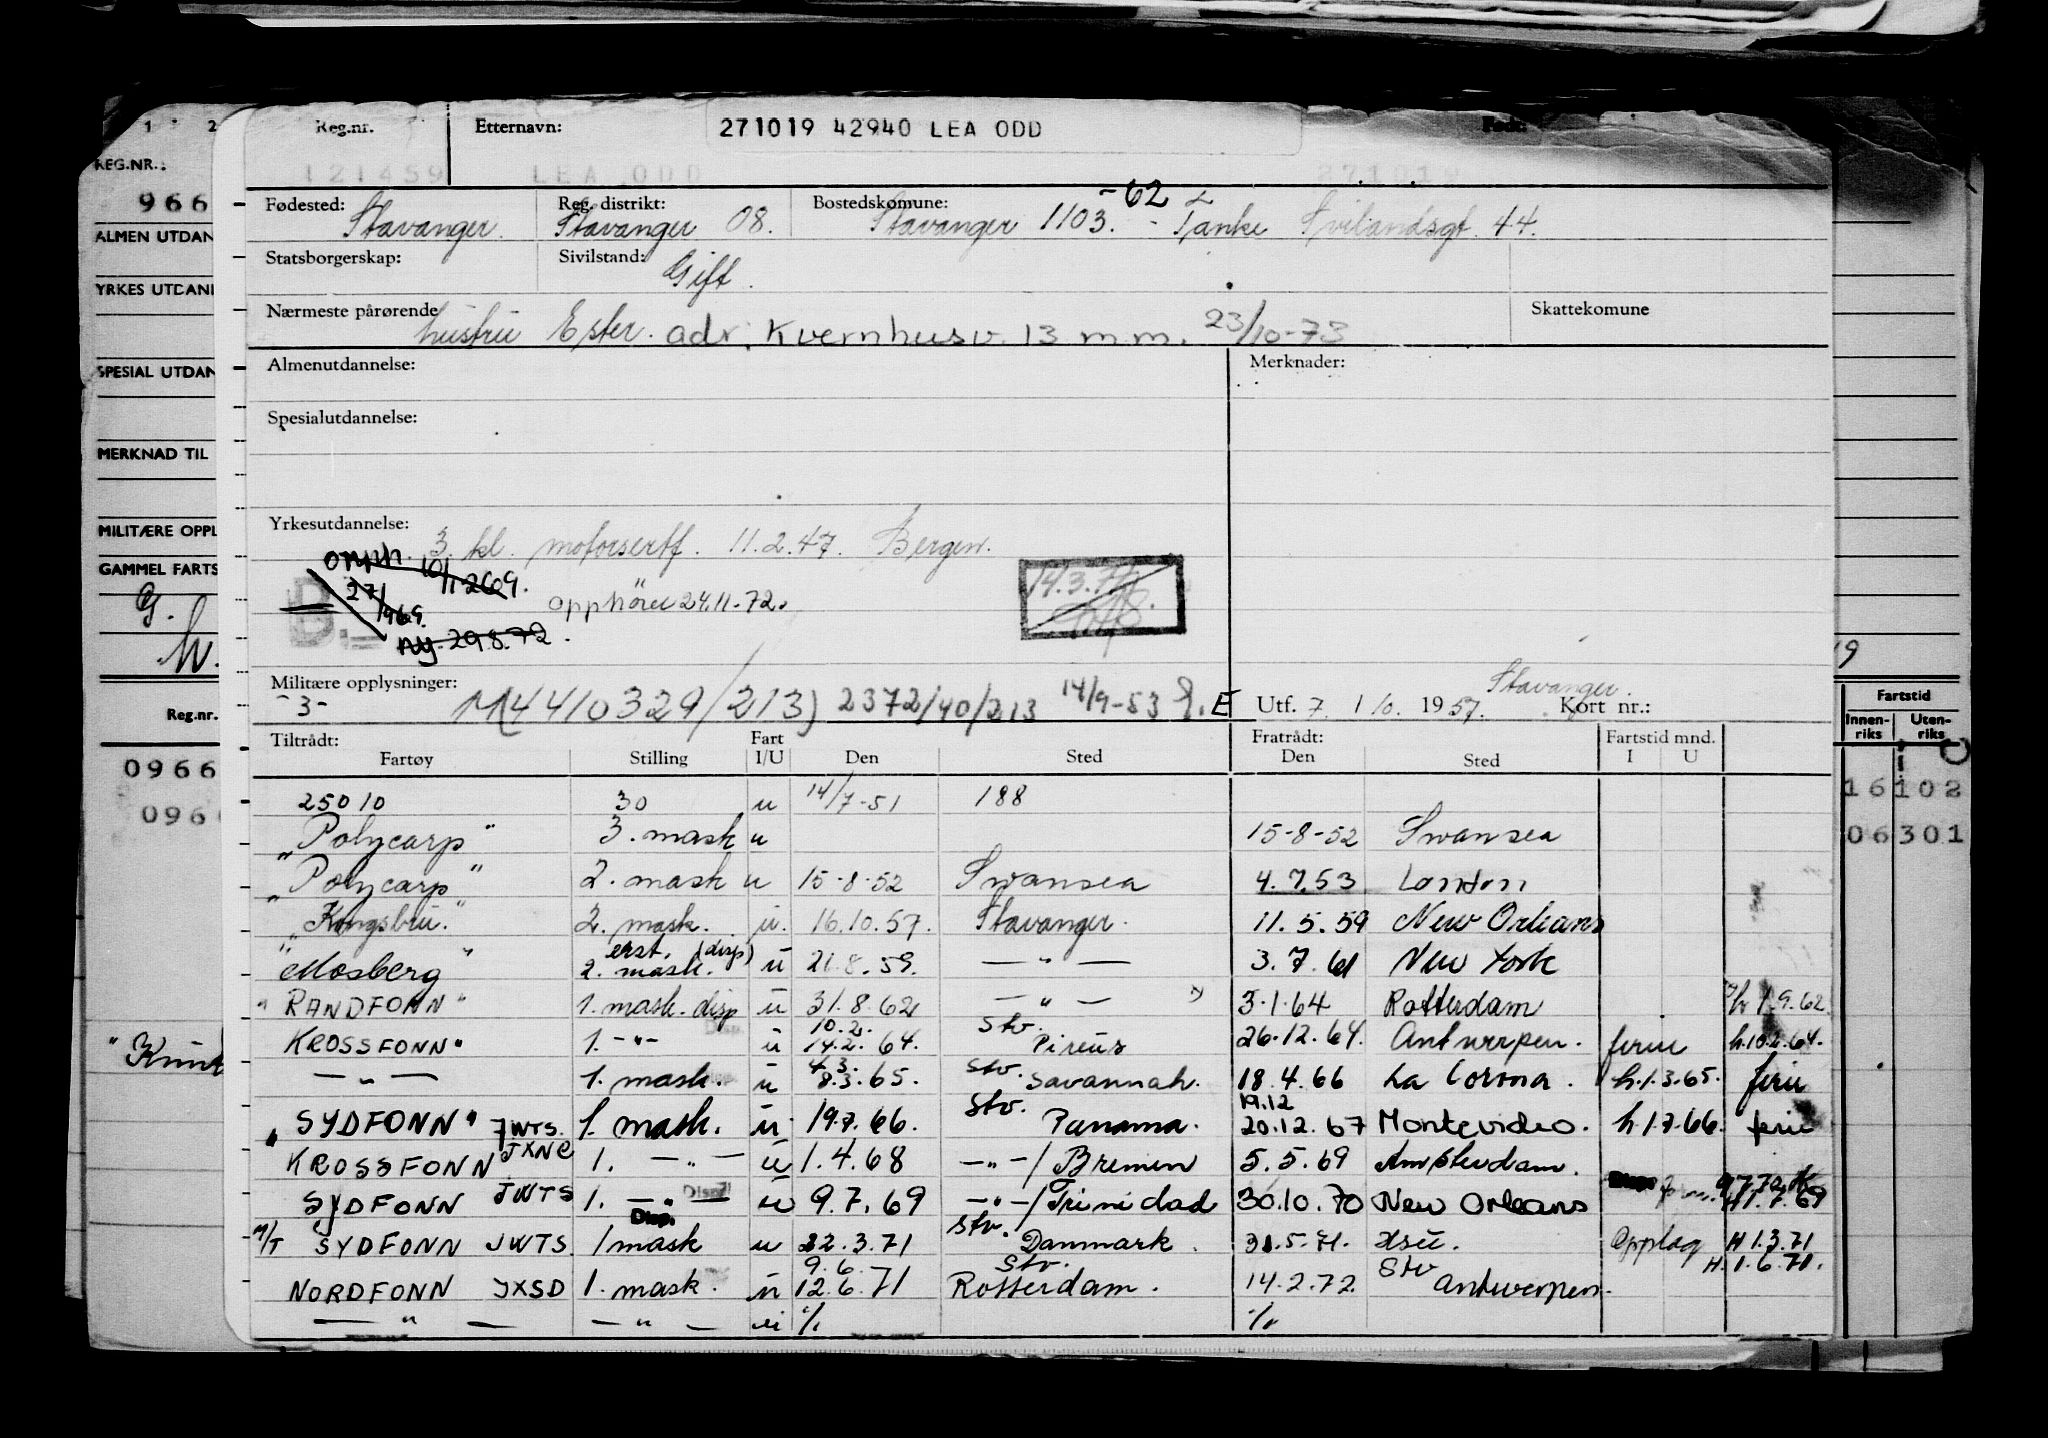 1 2
REG.NR.:
966
ALMEN UTDAN
YRKES UTDANI
SPESIAL UTDAN
MERKNAD TIL
MILITÆRE OPPL
GAMMEL FARTS
G.
Reg.nr.
0966
096
Reg.nr. Etternavn: 271019 42940 LEA ODD Født:
121459 LEA ODD 271019
Fødested: Stavanger. Reg. distrikt: Stavanger 08. Bostedskomune: Stavanger 1103. -62 - Tanke Svilandsgt. 44.
Statsborgerskap: Sivilstand: Gift.
Nærmeste pårørende hustru Ester. adr. Kvernhusv. 13 m.m. 23/10-73 Skattekomune
Almenutdannelse: Merknader:
Spesialutdannelse:
Yrkesutdannelse: 3. kl. motorsertf. 11.2.47. Bergen.
opph.
27/969.
opphörer 24.11.72.
ny 29.8.72.
Militære opplysninger: -3- M(4410329/213) 2372/40/213 14/9-53 E Utf. 7. 1/0. 1957. Stavanger. Kort nr.:
Tiltrådt: Fart Fratrådt: Fartstid mnd.
Fartøy Stilling I/U Den Sted Den Sted I U
25010 30 u 14/7-51 188
"Polycarp" 3. mask u 15-8-52 Swansea
"Polycarp" 2. mask u 15-8-52 Swansea 4.7.53 London
"Kongsbru." 2. mask. u. 16.10.57. Stavanger. 11.5.59 New Orleans
"Mosberg" erst. 2. mask. (disp) u 21.8.59. — " — 3.7.61 New York
"RANDFONN" 1. mask. disp u 31.8.62 — " — x) 3.1.64 Rotterdam x) h 1.9.62
KROSSFONN" 1. -"- u 10.2. 14.2.64. Stv. Pireus 26.12.64. Antwerpen. ferie h.10.2.64.
— " — 1. mask. u 4.3. 8.3.65. Stv. Savannah. 18.4.66 La Coruna. h.1.3.65. ferie
"SYDFONN" JWTS. 1. mask. u 19.7.66. Stv. Panama. 19.12 20.12.67 Montevideo. h.1.7.66. ferie
KROSSFONN JXNC 1. — " — u 1.4.68 -"-/Bremen 5.5.69 Amsterdam.
SYDFONN JWTS 1. — " — u 9.7.69 -"-/Trinidad 30.10.70 New Orleans H 1.7.69
M/T SYDFONN JWTS Disp. 1 mask u 22.3.71 Stv. Danmark. 31.5.71. Opplag H 1.3.71
NORDFONN JXSD 1. mask. u 9.6. 12.6.71 Stv. Rotterdam. 14.2.72. Stv Antwerpen. H. 1.6.71.
— " — — " — u %. %.
Fartstid
Innen-riks Uten-riks
16 102
06 301